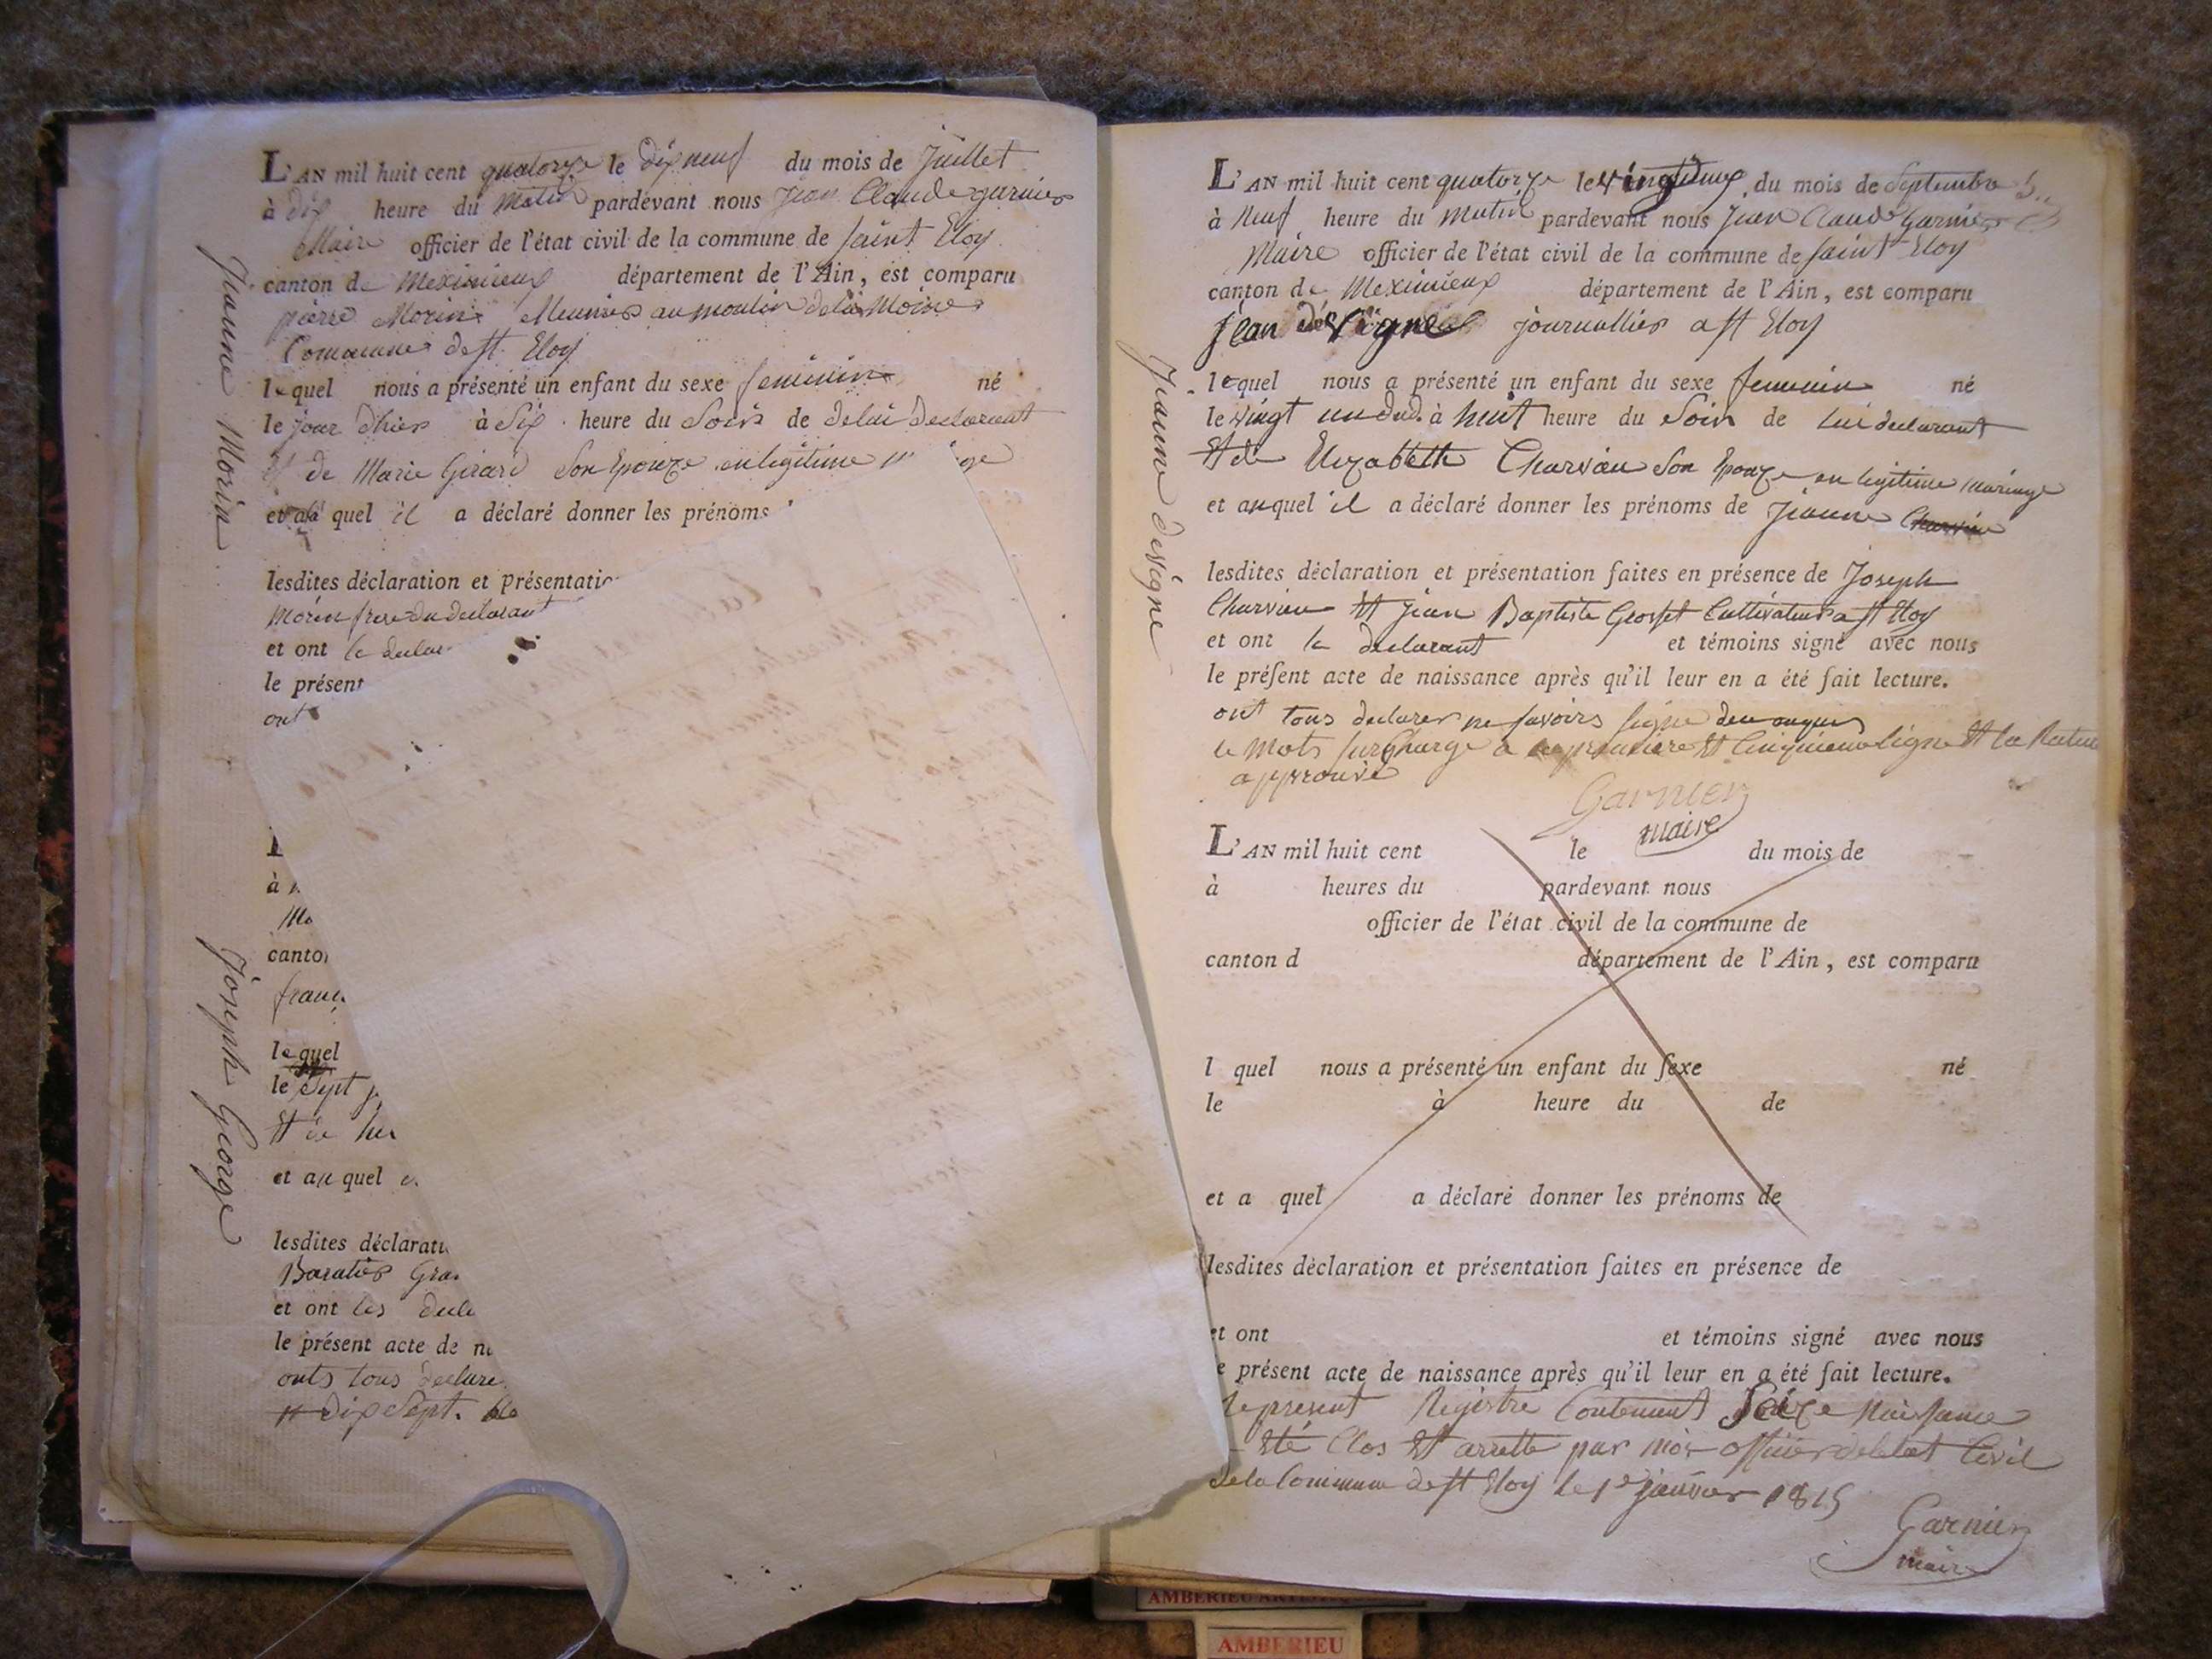 L'AN mil huit cent quatorze le dix neuf du mois de Juillet
à dix heure du Matin pardevant nous Jean Claude garnier
Maire officier de l'état civil de la commune de saint Eloy
canton de Meximieux département de l'Ain, est comparu
pierre Morin Meunier au moulin
Commune de st Eloy
lequel nous a présenté un enfant du sexe feminin né
le jour d'hier à Six heure du Soir de de lui declarant
Et de Marie Girard Son Epouze en legitime
et au quel il a déclaré donner les prénoms
lesdites déclaration et présentatio
Morin frere du declarant
et ont le declar
le présent
ont
Jeanne Morin
L
à
Ma
canton
franç
lequel
le Sept
Et de
et au quel
lesdites déclarati
Baratier Gra
et ont les decla
le présent acte de n
onts tous declare
dix Sept.
Joseph George
L'AN mil huit cent quatorze le vingtdeux du mois de Septembre
à Neuf heure du Matin pardevant nous Jean Claude Garnier
Maire officier de l'état civil de la commune de saint Eloy
canton de Meximieux département de l'Ain, est comparu
jean desvigne journallier a st Eloy
lequel nous a présenté un enfant du sexe feminin né
le vingt un dud. à huit heure du Soir de lui declarant
Et de Elizabeth Charvin Son Epouze en legitime mariage
et auquel il a déclaré donner les prénoms de Jeanne Charvin
lesdites déclaration et présentation faites en présence de Joseph
Charvin Et Jean Baptiste Grosset Cultivateur a st Eloy
et ont le declarant et témoins signé avec nous
le présent acte de naissance après qu'il leur en a été fait lecture.
ont tous declarer ne savoirs signe
le Mots surcharge a la premiere Et Cinquieme ligne Et la Rature
approuvé
Garnier
maire
Jeanne desvigne
L'AN mil huit cent le du mois de
à heures du pardevant nous
officier de l'état civil de la commune de
canton d département de l'Ain, est comparu
l quel nous a présenté un enfant du sexe né
le à heure du de
et a quel a déclaré donner les prénoms de
lesdites déclaration et présentation faites en présence de
et ont et témoins signé avec nous
e présent acte de naissance après qu'il leur en a été fait lecture.
Le present Registre Contenant Seize Naissance
Eté Clos Et arretté par moi officier de letat Civil
de la Commune de st Eloy Le 1er janvier 1815
Garnier
maire
AMBERIEU
AMBERIEU